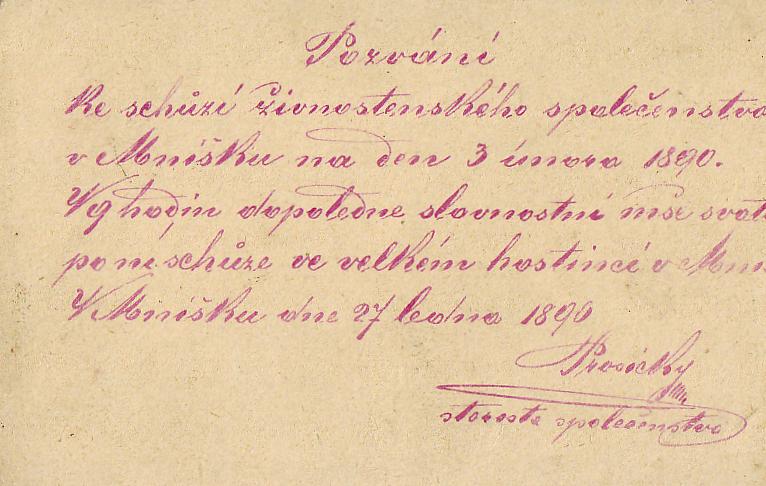 Pozvání
ke schůzi živnostenského společenstva
v Mníšku na den 3 února 1890.
V 9 hodin dopoledne slavnostní mše svatá
po ní schůze ve velkém hostinci v
V Mníšku dne 27 ledna 1890
starosta společenstva